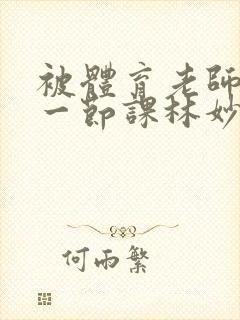 被體育老師
一節課林妙
何雨繁